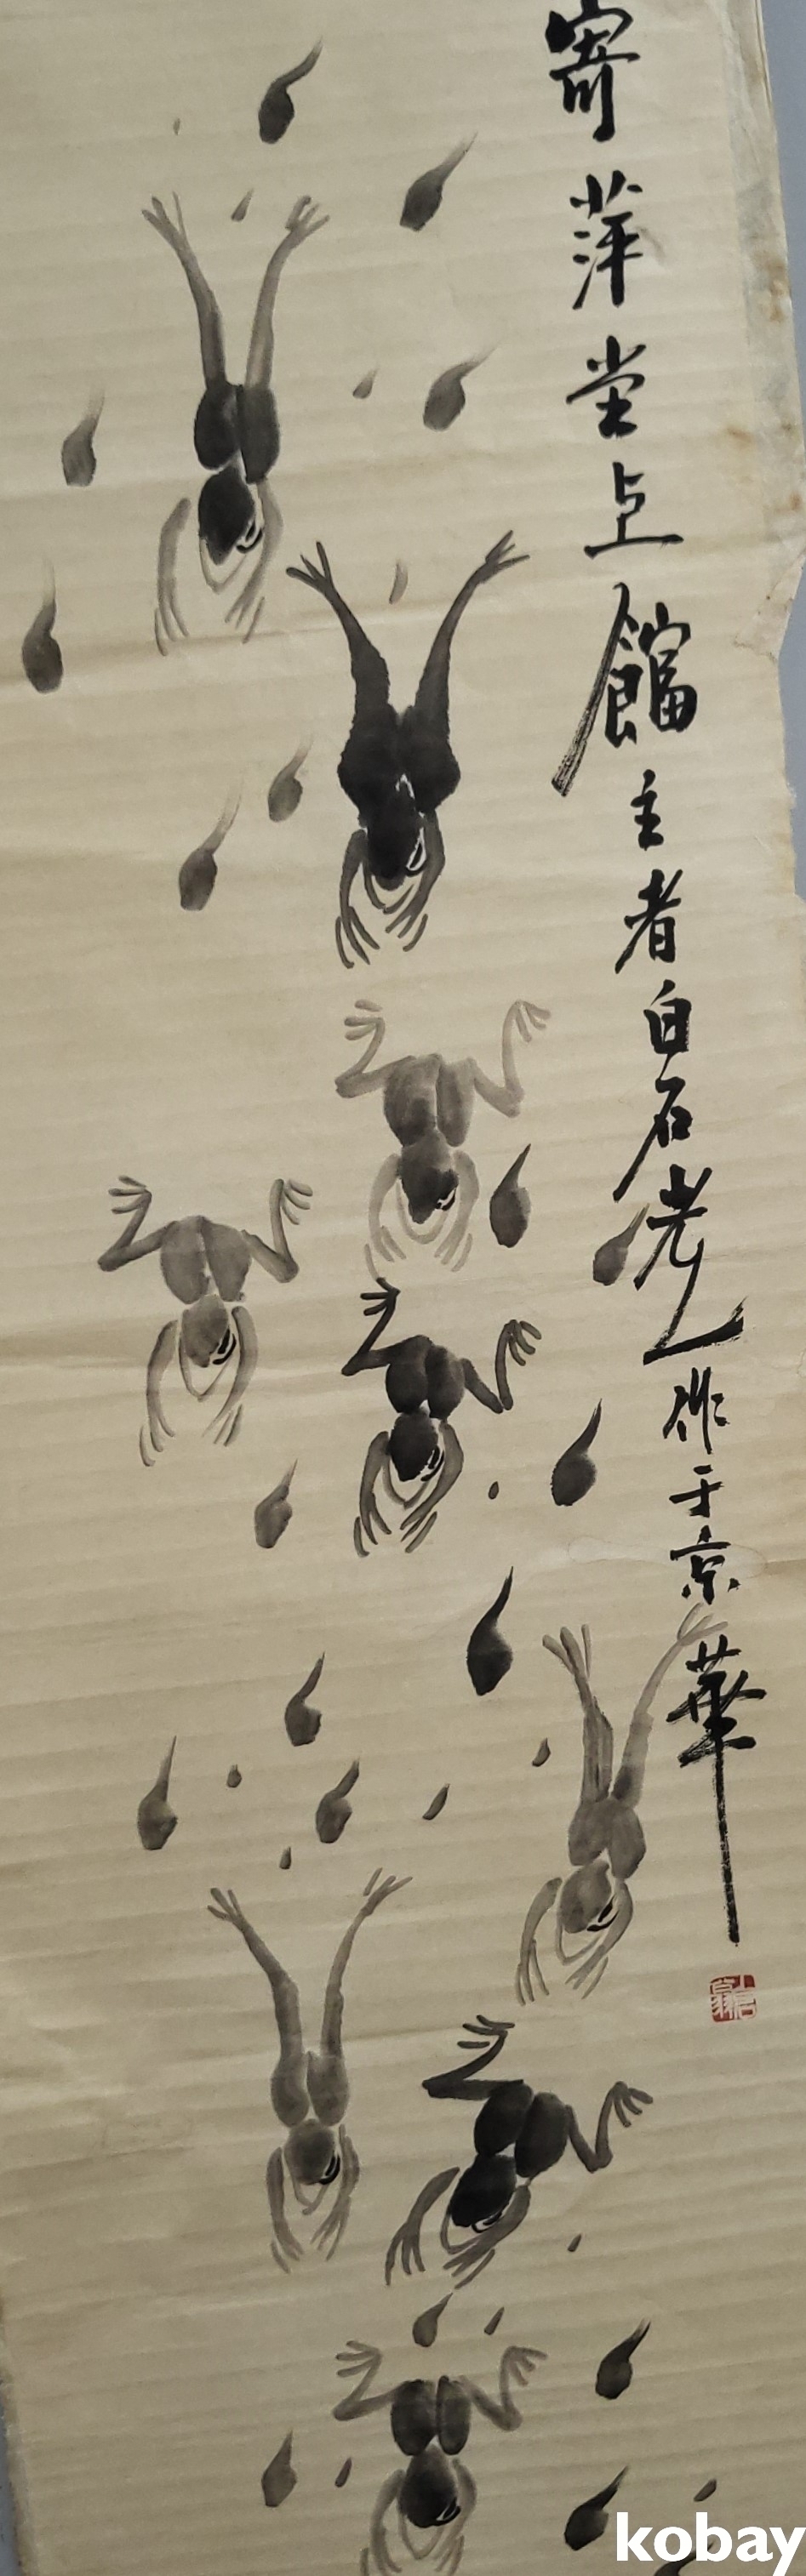 寄萍堂 館主者白石老作于京華
kobay